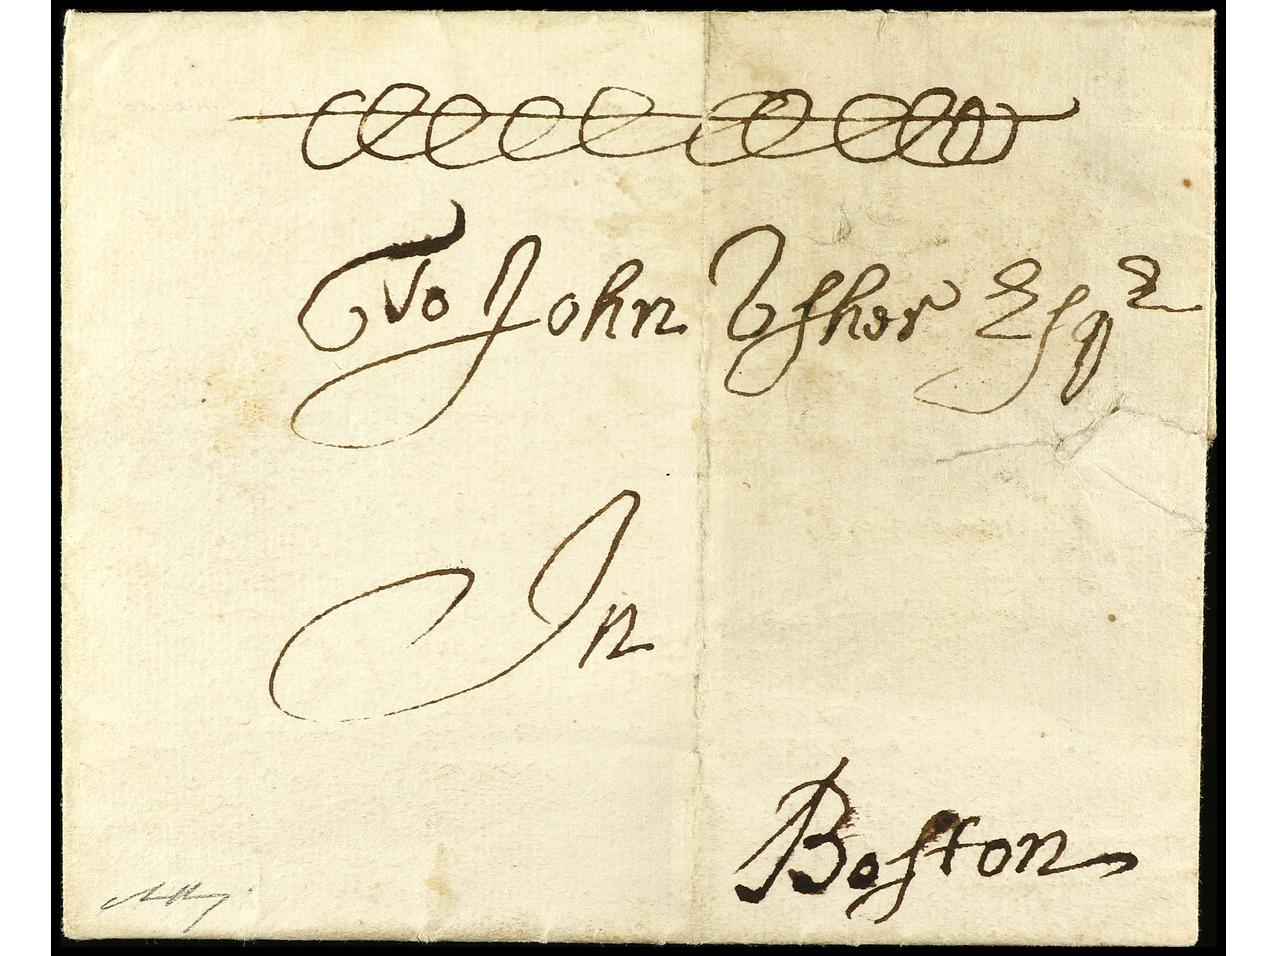 To John Vſher Eſqr
In
Boſton